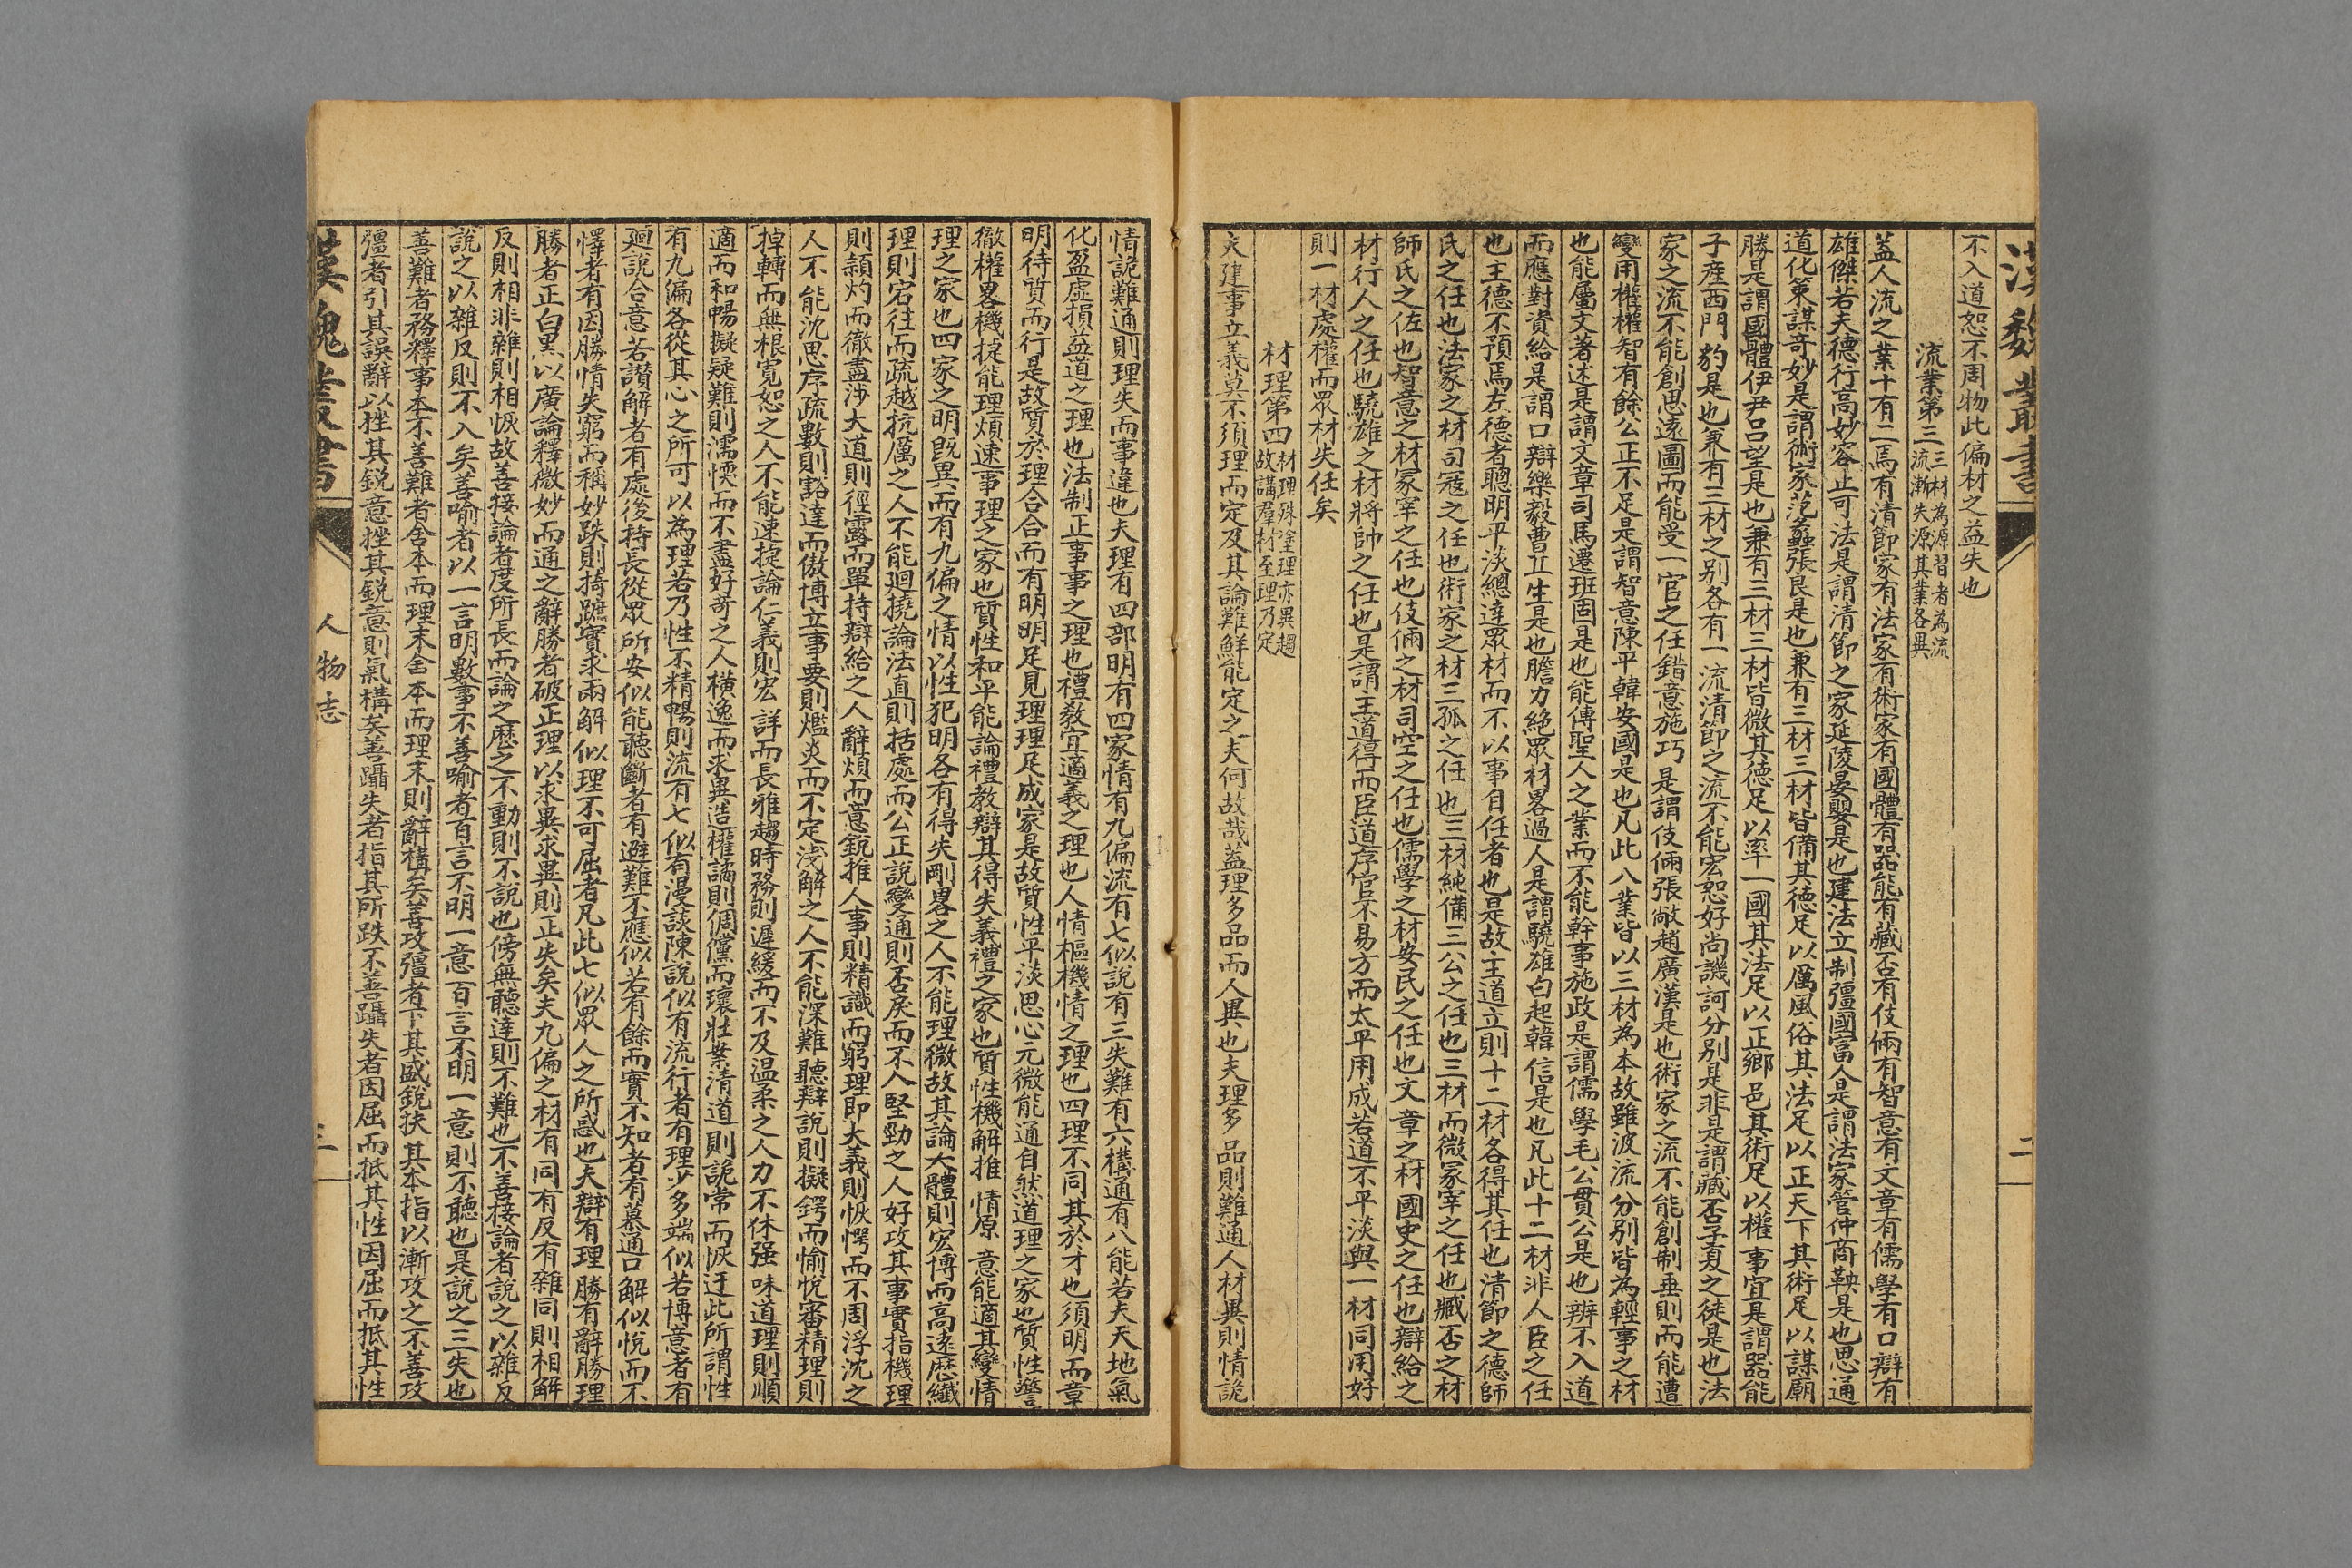 漢魏叢書
二
不入道恕不周物此偏材之益失也
流業第三
三材為源習者為流
流漸失源其業各異
蓋人流之業十有二焉有清節家有法家有術家有國體有器能有臧否有伎倆有智意有文章有儒學有口辯有
雄傑若夫德行高妙容止可法是謂清節之家延陵晏嬰是也建法立制彊國富人是謂法家管仲商鞅是也思通
道化策謀奇妙是謂術家范蠡張良是也兼有三材三材皆備其德足以厲風俗其法足以正天下其術足以謀廟
勝是謂國體伊尹呂望是也兼有三材三材皆微其德足以率一國其法足以正鄉邑其術足以權事宜是謂器能
子産西門豹是也兼有三材之别各有一流清節之流不能宏恕好尚譏訶分别是非是謂臧否子夏之徒是也法
家之流不能創思遠圖而能受一官之任錯意施巧是謂伎倆張敞趙廣漢是也術家之流不能創制垂則而能遭
變用權權智有餘公正不足是謂智意陳平韓安國是也凡此八業皆以三材為本故雖波流分别皆為輕事之材
也能屬文著述是謂文章司馬遷班固是也能傳聖人之業而不能幹事施政是謂儒學毛公貫公是也辨不入道
而應對資給是謂口辯樂毅曹丘生是也膽力絶眾材畧過人是謂驍雄白起韓信是也凡此十二材非人臣之任
也主德不預焉左德者聰明平淡總達眾材而不以事自任者也是故主道立則十二材各得其任也清節之德師
氏之任也法家之材司寇之任也術家之材三孤之任也三材純備三公之任也三材而微冢宰之任也臧否之材
師氏之佐也智意之材冢宰之任也伎倆之材司空之任也儒學之材安民之任也文章之材國史之任也辯給之
材行人之任也驍雄之材將帥之任也是謂主道得而臣道序官不易方而太平用成若道不平淡與一材同用好
則一材處權而眾材失任矣
材理第四
材理殊塗理亦異趨
故講羣材至理乃定
夫建事立義莫不須理而定及其論難鮮能定之夫何故哉蓋理多品而人異也夫理多品則難通人材異則情詭
情詭難通則理失而事違也夫理有四部明有四家情有九偏流有七似說有三失難有六構通有八能若夫天地氣
化盈虛損益道之理也法制正事事之理也禮教宜適義之理也人情樞機情之理也四理不同其於才也須明而章
明待質而行是故質於理合合而有明明足見理理足成家是故質性平淡思心元微能通自然道理之家也質性警
徹權畧機捷能理煩速事理之家也質性和平能論禮教辯其得失義禮之家也質性機解推情原意能適其變情
理之家也四家之明既異而有九偏之情以性犯明各有得失剛畧之人不能理微故其論大體則宏博而高遠歷纖
理則宕往而疏越抗厲之人不能迴撓論法直則括處而公正說變通則否戾而不入堅勁之人好攻其事實指機理
則頴灼而徹盡涉大道則徑露而單持辯給之人辭煩而意銳推人事則精識而窮理即大義則恢愕而不周浮沈之
人不能沈思序疏數則豁達而傲博立事要則爁炎而不定淺解之人不能深難聽辯說則擬鍔而愉悅審精理則
掉轉而無根寬恕之人不能速捷論仁義則宏詳而長雅趨時務則遲緩而不及温柔之人力不休强味道理則順
適而和暢擬疑難則濡愞而不盡好奇之人橫逸而求異造權譎則倜儻而瓌壯案清道則詭常而恢迂此所謂性
有九偏各從其心之所可以為理若乃性不精暢則流有七似有漫談陳說似有流行者有理少多端似若博意者有
迴說合意若讃解者有處後持長從眾所安似能聽斷者有避難不應似若有餘而實不知者有慕通口解似悅而不
懌者有因勝情失窮而稱妙跌則掎蹠實求兩解似理不可屈者凡此七似眾人之所惑也夫辯有理勝有辭勝理
勝者正白黒以廣論釋微妙而通之辭勝者破正理以求異求異則正失矣夫九偏之材有同有反有雜同則相解
反則相非雜則相恢故善接論者度所長而論之歷之不動則不說也傍無聽達則不難也不善接論者說之以雜反
說之以雜反則不入矣善喻者以一言明數事不善喻者百言不明一意百言不明一意則不聽也是說之三失也
善難者務釋事本不善難者舍本而理末舍本而理末則辭構矣善攻彊者下其盛銳扶其本指以漸攻之不善攻
彊者引其誤辭以挫其銳意挫其銳意則氣構矣善躡失者指其所跌不善躡失者因屈而抵其性因屈而抵其性
漢魏叢書
人物志
三